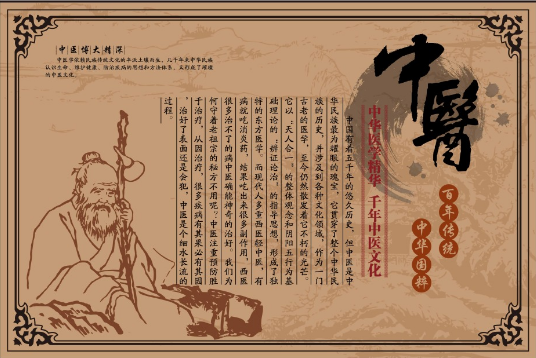 中醫
百年传统
中华国粹
中华医学精华 千年中医文化
中国有着五千年的悠久历史，但中医是中
华民族最为耀眼的瑰宝，它贯穿了整个中华民
族的历史，并涉及到各种文化领域，作为一门
古老的医学，至今仍然散发着它不朽的光芒。
它以：天人合一。的整体观念和阴阳五行为基
础理论的：辨证论治。的指导思想，形成了独
特的东方医学。而现代人多重西医轻中医，有
病就吃消炎药，结果吃出来很多副作用，西医
很多治不了的病中医确能神奇的治好，我们为
何守着老祖宗的秘方不用呢？中医注重预防胜
于治疗，从因治疗，很多疾病有其果必有其因
，治疗了表面还是会犯，中医是个细水长流的
过程。
中医博大精深
中医学依托民族传统文化的丰沃土壤而生，几千年来中华民族
认识生命、维护健康、防治疾病的思想和方法体系，实打造了璀璨
的中医文化